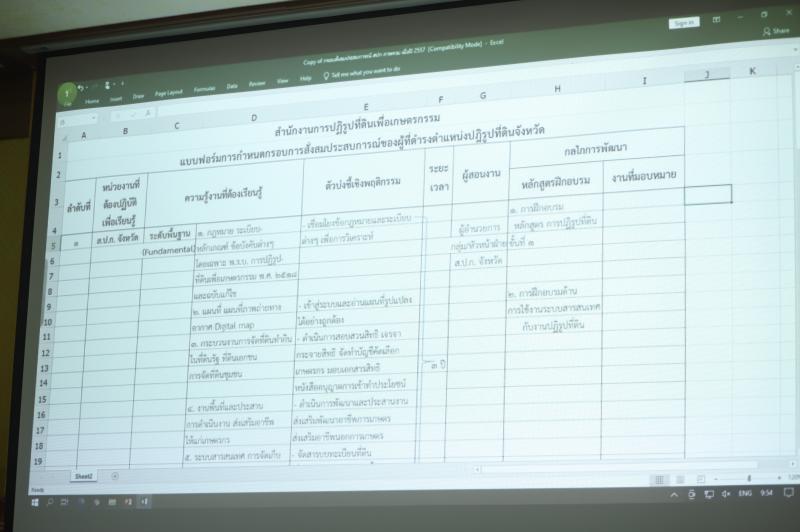 Copy of กรอบสั่งสมประสบการณ์ สปก ภาคกรม เมื่อปี 2557 [Compatibility Mode] - Excel
Sign in
File Home Insert Draw Page Layout Formulas Data Review View Help Tell me what you want to do
Share
A B C D E F G H I J K
สำนักงานการปฏิรูปที่ดินเพื่อเกษตรกรรม
แบบฟอร์มการกำหนดกรอบการสั่งสมประสบการณ์ของผู้ที่ดำรงตำแหน่งปฏิรูปที่ดินจังหวัด
ลำดับที่
หน่วยงานที่
ต้องปฏิบัติ
เพื่อเรียนรู้
ความรู้งานที่ต้องเรียนรู้
ตัวบ่งชี้เชิงพฤติกรรม
ระยะ
เวลา
ผู้สอนงาน
กลไกการพัฒนา
หลักสูตรฝึกอบรม
งานที่มอบหมาย
๑
ส.ป.ก. จังหวัด
ระดับพื้นฐาน
(Fundamental)
๑. กฎหมาย ระเบียบ
หลักเกณฑ์ ข้อบังคับต่างๆ
โดยเฉพาะ พ.ร.บ. การปฏิรูป
ที่ดินเพื่อเกษตรกรรม พ.ศ. ๒๕๑๘
และฉบับแก้ไข
- เชื่อมโยงข้อกฎหมายและระเบียบ
ต่างๆ เพื่อการวิเคราะห์
ผู้อำนวยการ
กลุ่ม/หัวหน้าฝ่าย
ส.ป.ก. จังหวัด
๑. การฝึกอบรม
หลักสูตร การปฏิรูปที่ดิน
ขั้นที่ ๑
๒. แผนที่ แผนที่ภาพถ่ายทาง
อากาศ Digital map
- เข้าสู่ระบบและอ่านแผนที่รูปแปลง
ได้อย่างถูกต้อง
๒. การฝึกอบรมด้าน
การใช้งานระบบสารสนเทศ
กับงานปฏิรูปที่ดิน
๓. กระบวนงานการจัดที่ดินทำกิน
ในที่ดินรัฐ ที่ดินเอกชน
การจัดที่ดินชุมชน
- ดำเนินการสอบสวนสิทธิ เจรจา
กระจายสิทธิ จัดทำบัญชีคัดเลือก
เกษตรกร มอบเอกสารสิทธิ
หนังสืออนุญาตการเข้าทำประโยชน์
๓ ปี
๔. งานพื้นที่และประสาน
การดำเนินงาน ส่งเสริมอาชีพ
ให้แก่เกษตรกร
- ดำเนินการพัฒนาและประสานงาน
ส่งเสริมพัฒนาอาชีพการเกษตร
ส่งเสริมอาชีพนอกการเกษตร
๕. ระบบสารสนเทศ การจัดเก็บ
- จัดสารบบทะเบียนที่ดิน
Sheet2
Ready
120%
ENG 9:54